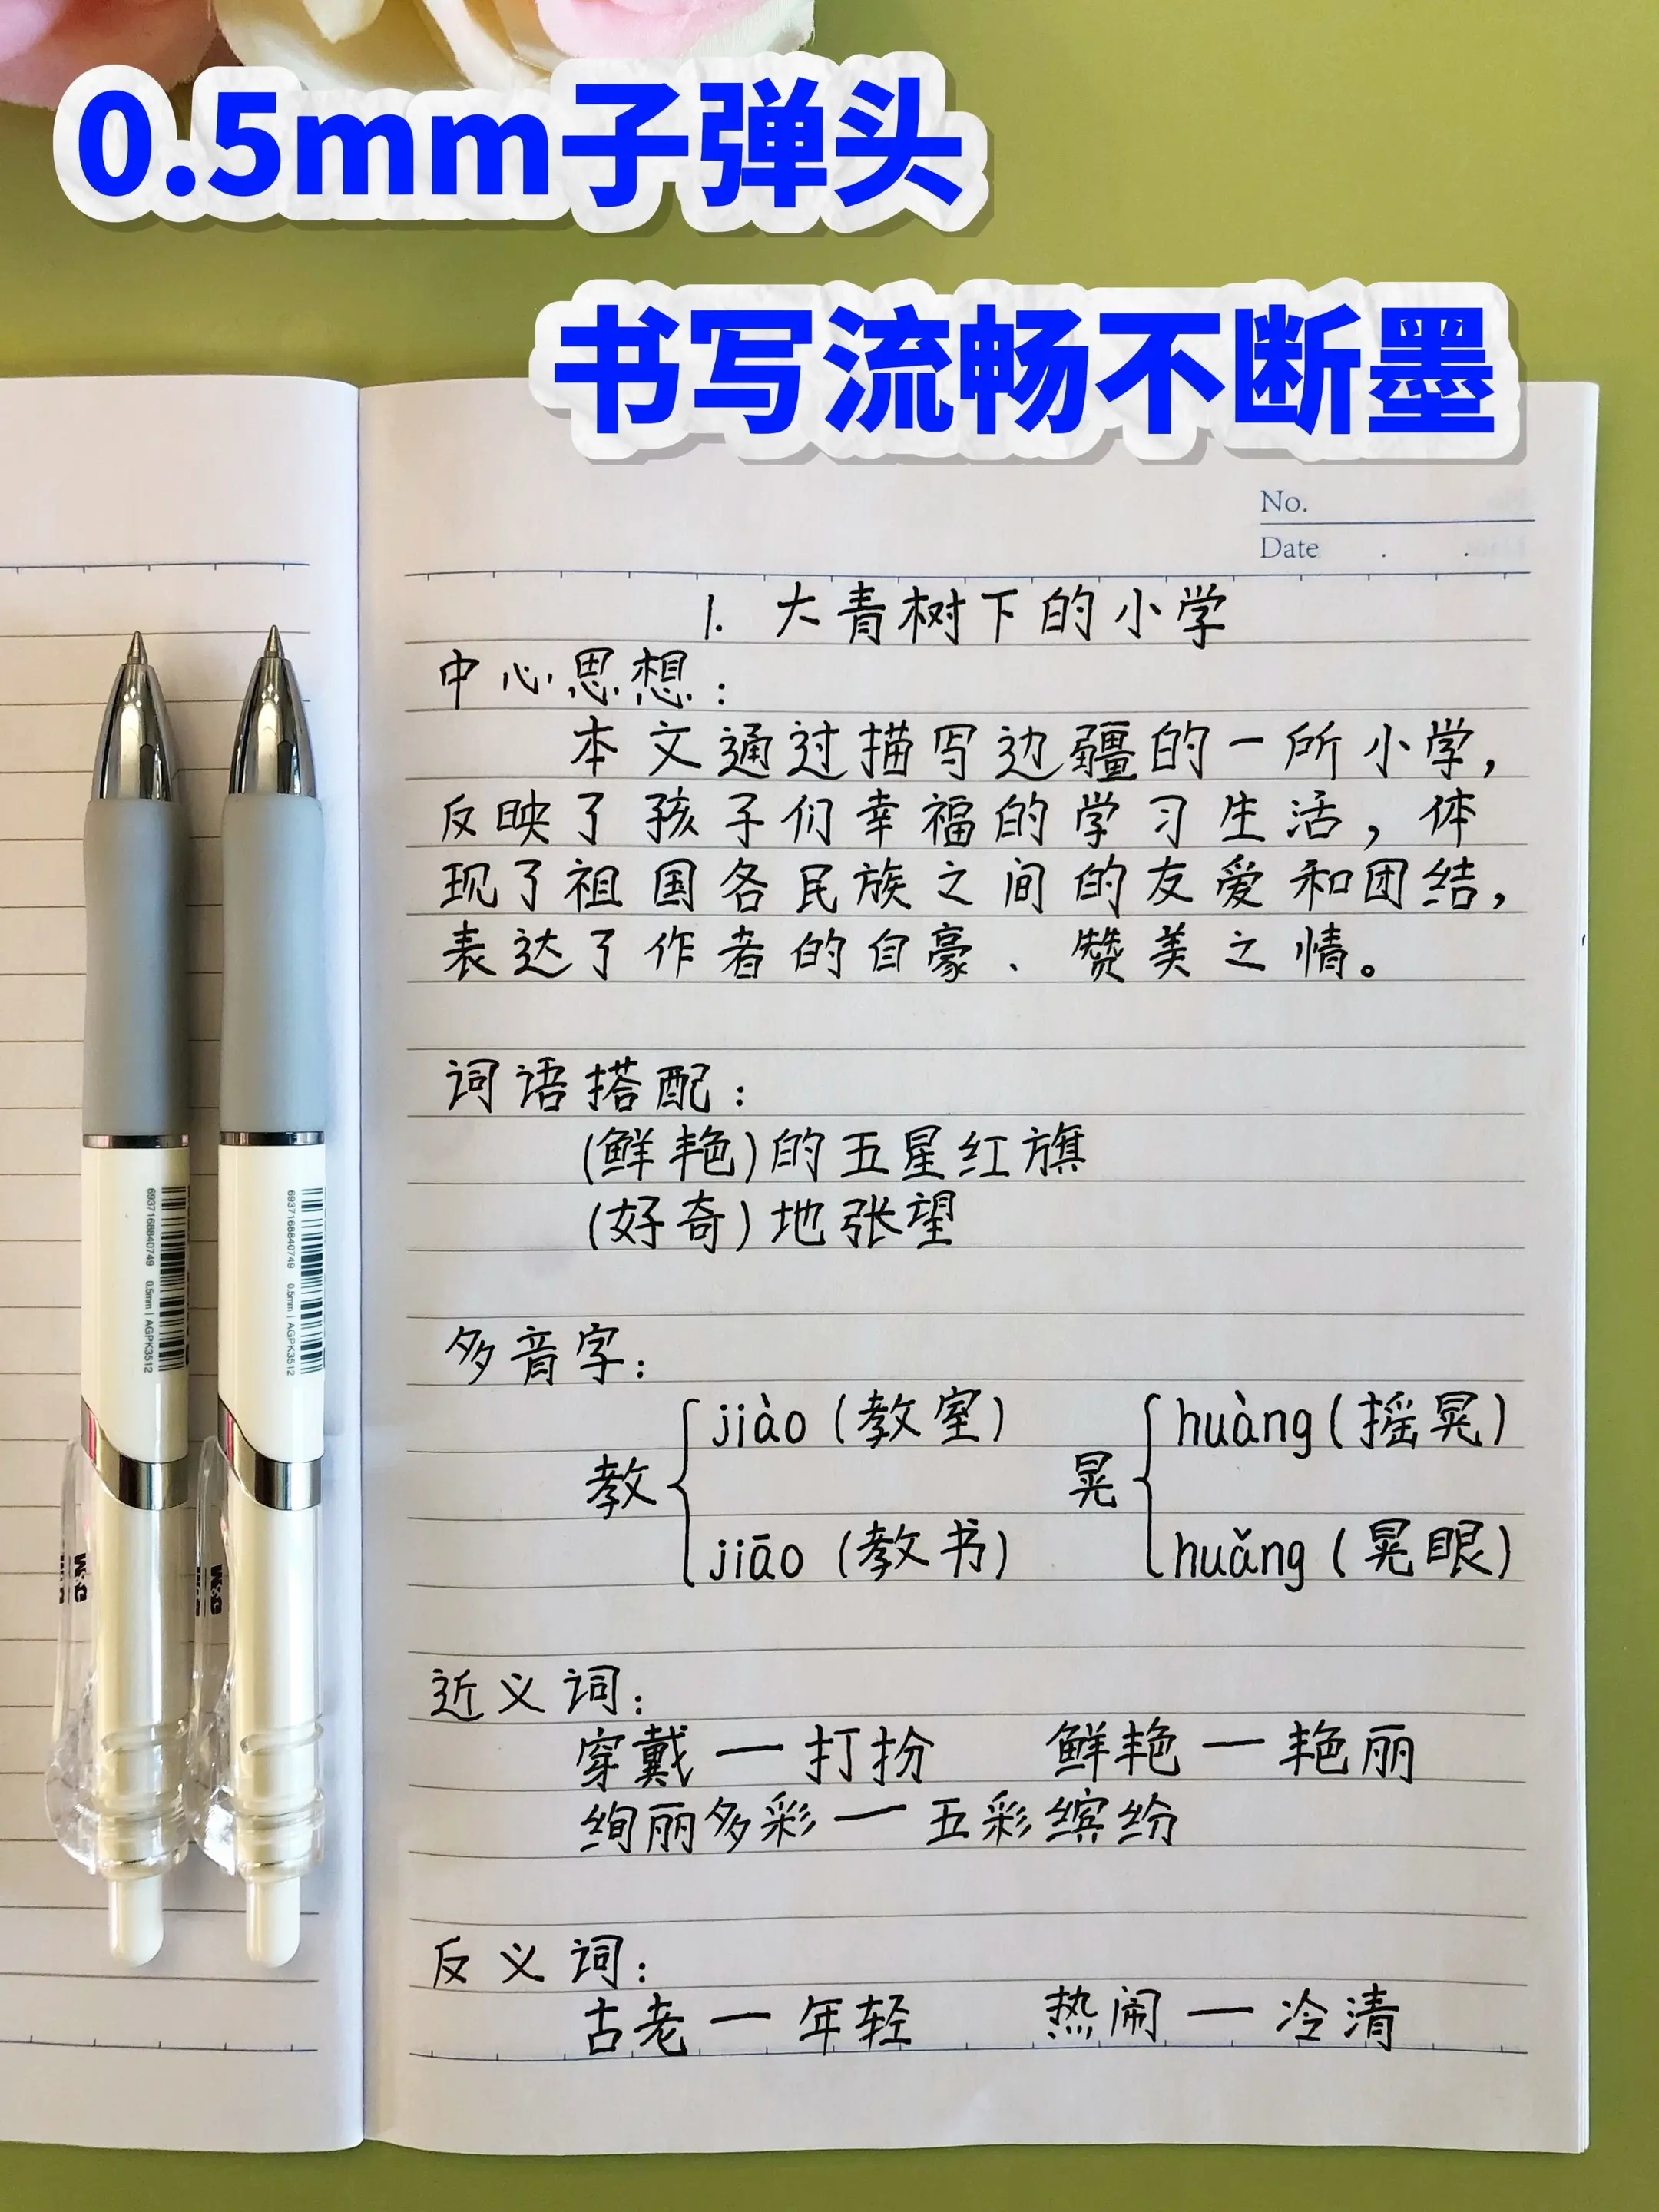 0.5mm子弹头
书写流畅不断墨
No.
Date . .
1. 大青树下的小学
中心思想:
本文通过描写边疆的一所小学,
反映了孩子们幸福的学习生活,体
现了祖国各民族之间的友爱和团结,
表达了作者的自豪、赞美之情。
词语搭配:
(鲜艳)的五星红旗
(好奇)地张望
多音字:
教 jiào (教室) 晃 huàng (摇晃)
jiāo (教书) huǎng (晃眼)
近义词:
穿戴一打扮 鲜艳一艳丽
绚丽多彩一五彩缤纷
反义词:
古老一年轻 热闹一冷清
6937168840749 0.5mm | AGPK3512
6937168840749 0.5mm | AGPK3512
M&G
M&G